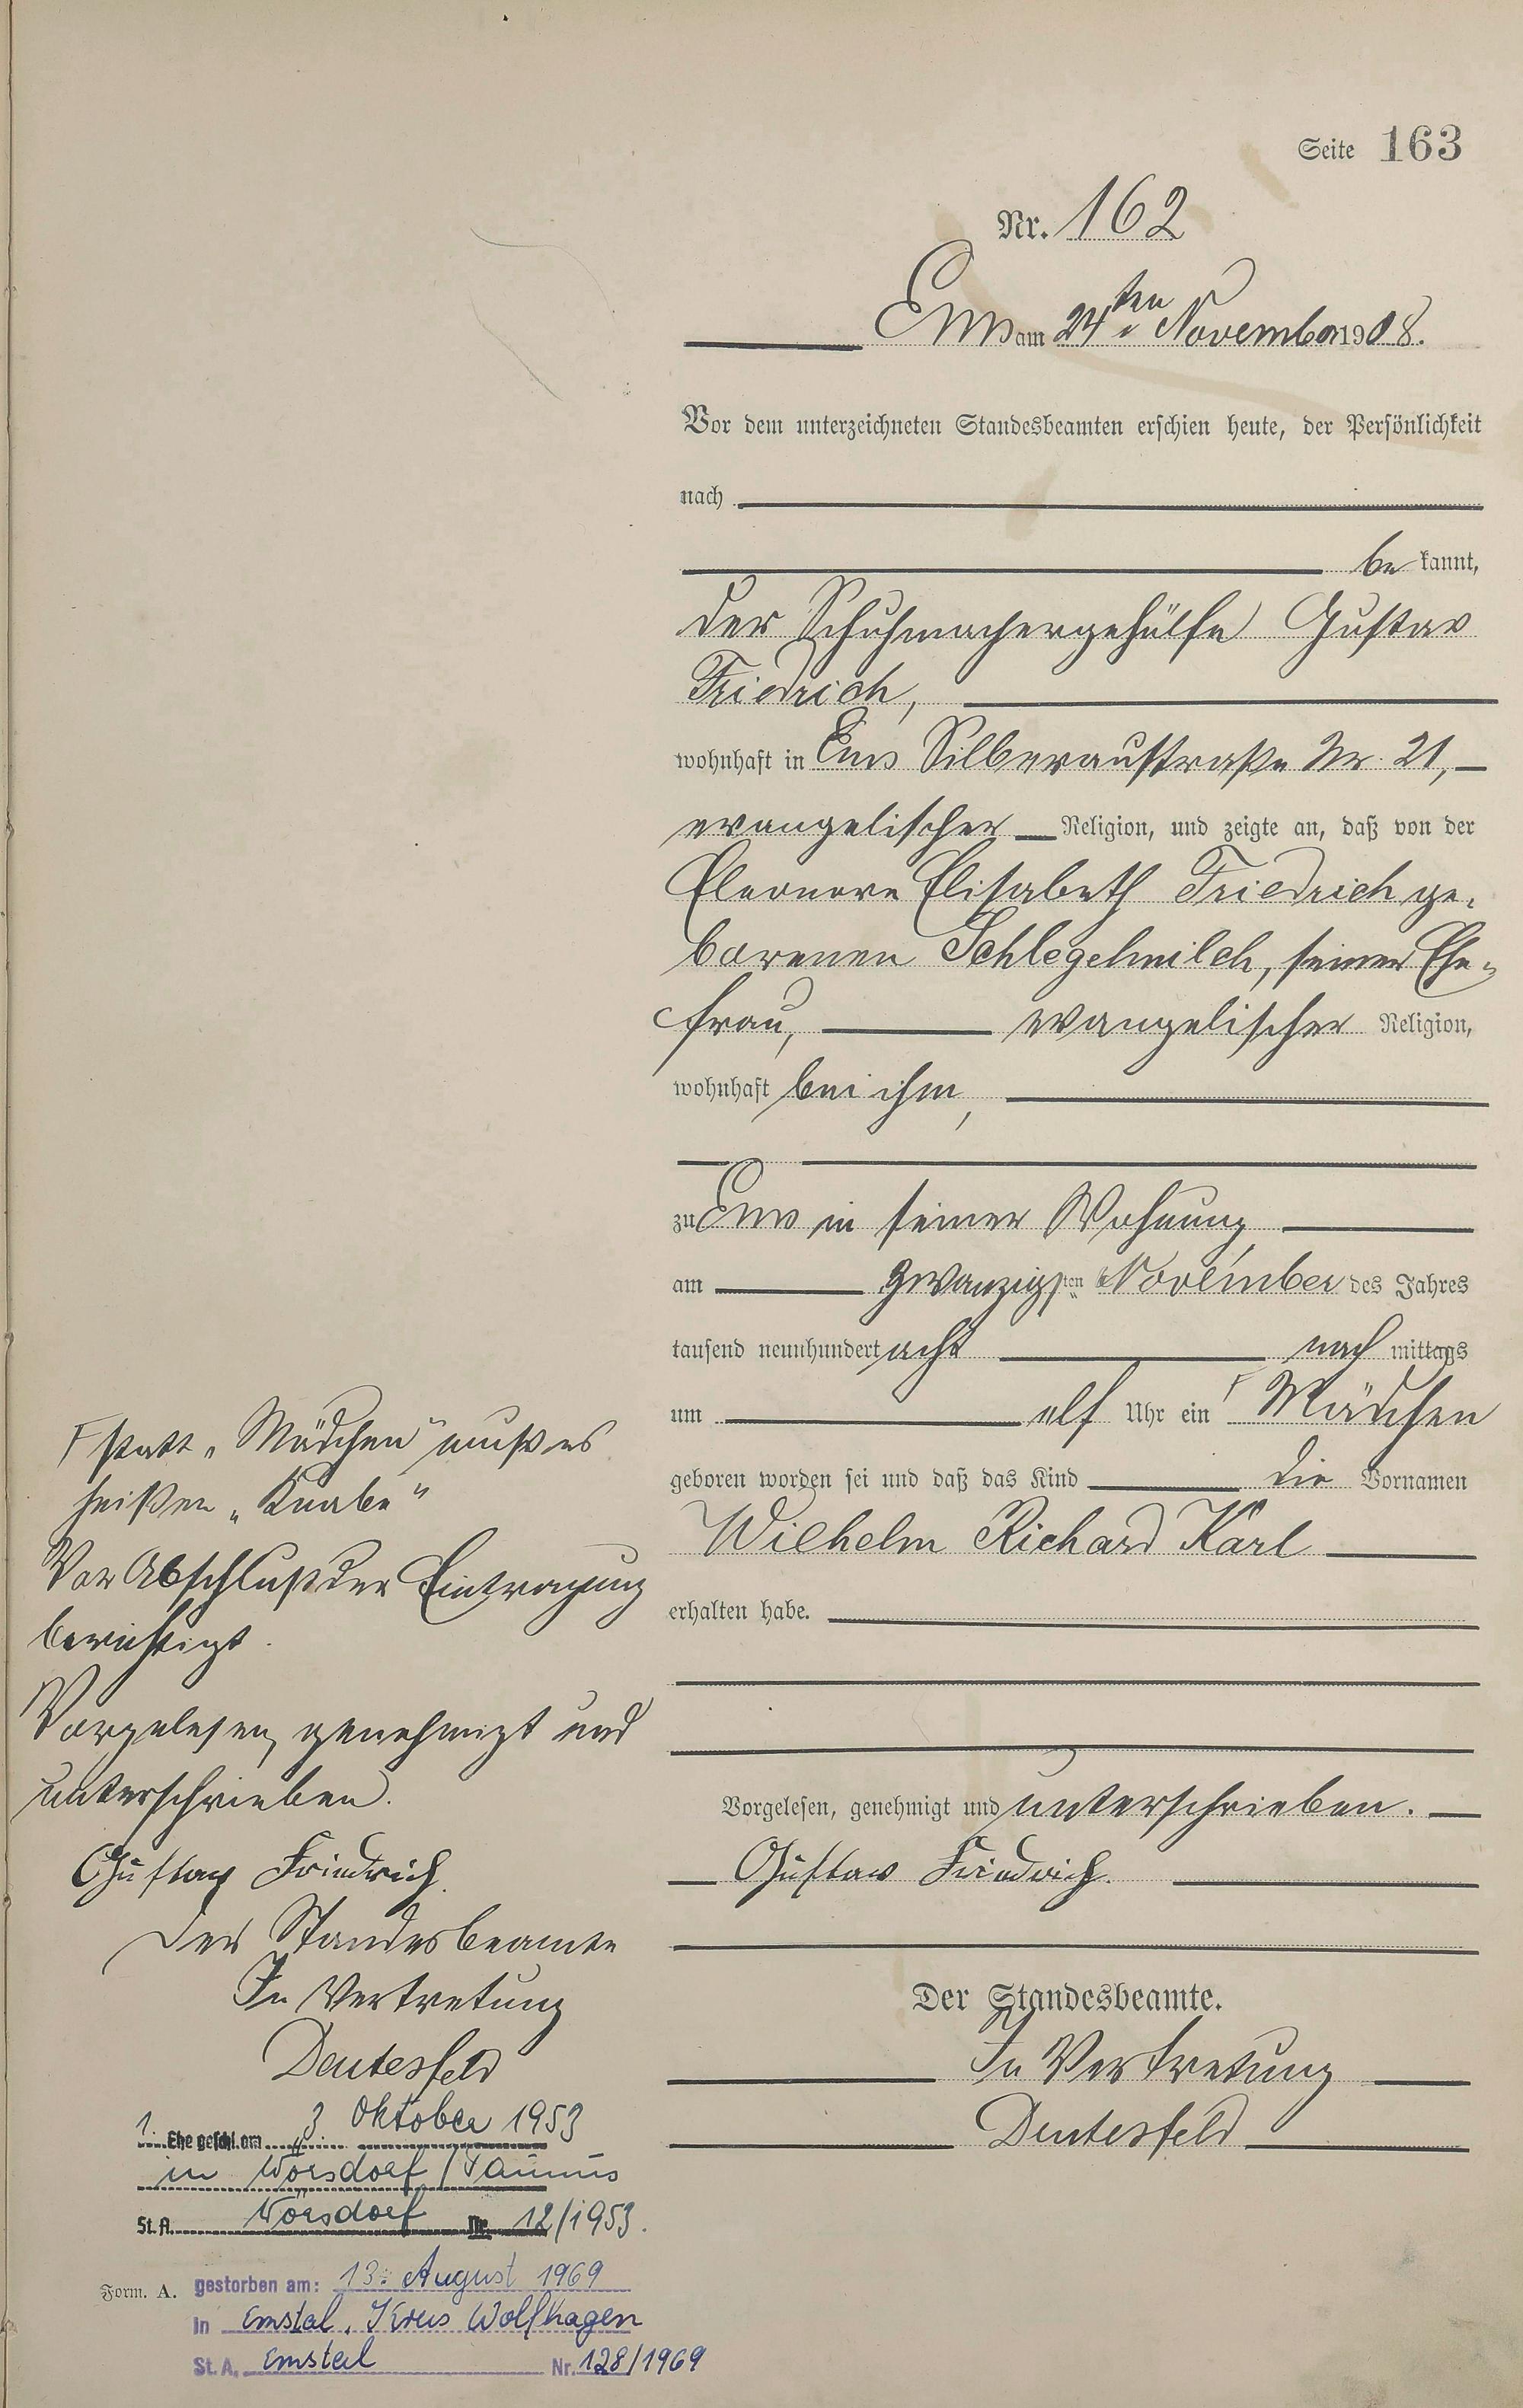 Seite 163
Nr. 162
Ems am 24ten November 1908.
Vor dem unterzeichneten Standesbeamten erschien heute, der Persönlichkeit
nach
be kannt,
der Schuhmachergehülfe Gustav
Friedrich,
wohnhaft in Ems Silberaustraße Nr. 21,
evangelischer Religion, und zeigte an, daß von der
Eleonore Elisabeth Friedrich ge-
borenen Schlegelmilch, seiner Ehe-
frau, evangelischer Religion,
wohnhaft bei ihm,
zu Ems in seiner Wohnung,
am zwanzigsten November des Jahres
tausend neunhundert acht nach mittags
um elf Uhr ein Mädchen
geboren worden sei und daß das Kind die Vornamen
Wilhelm Richard Karl
erhalten habe.
Vorgelesen, genehmigt und unterschrieben.
Gustav Friedrich.
Der Standesbeamte.
In Vertretung
Deutesfeld
statt „Mädchen" muß es
heißen „Knabe"
Vor Abschluß der Eintragung
berichtigt.
Vorgelesen, genehmigt und
unterschrieben.
Gustav Friedrich.
Der Standesbeamte
In Vertretung
Deutesfeld
1. Ehe geschl. am 3 Oktober 1953
in Wörsdorf/Taunus
St. A. Wörsdorf Nr. 12/1953.
Form. A.
gestorben am: 13. August 1969
in Emstal, Kreis Wolfhagen
St. A. Emstal Nr. 128/1969